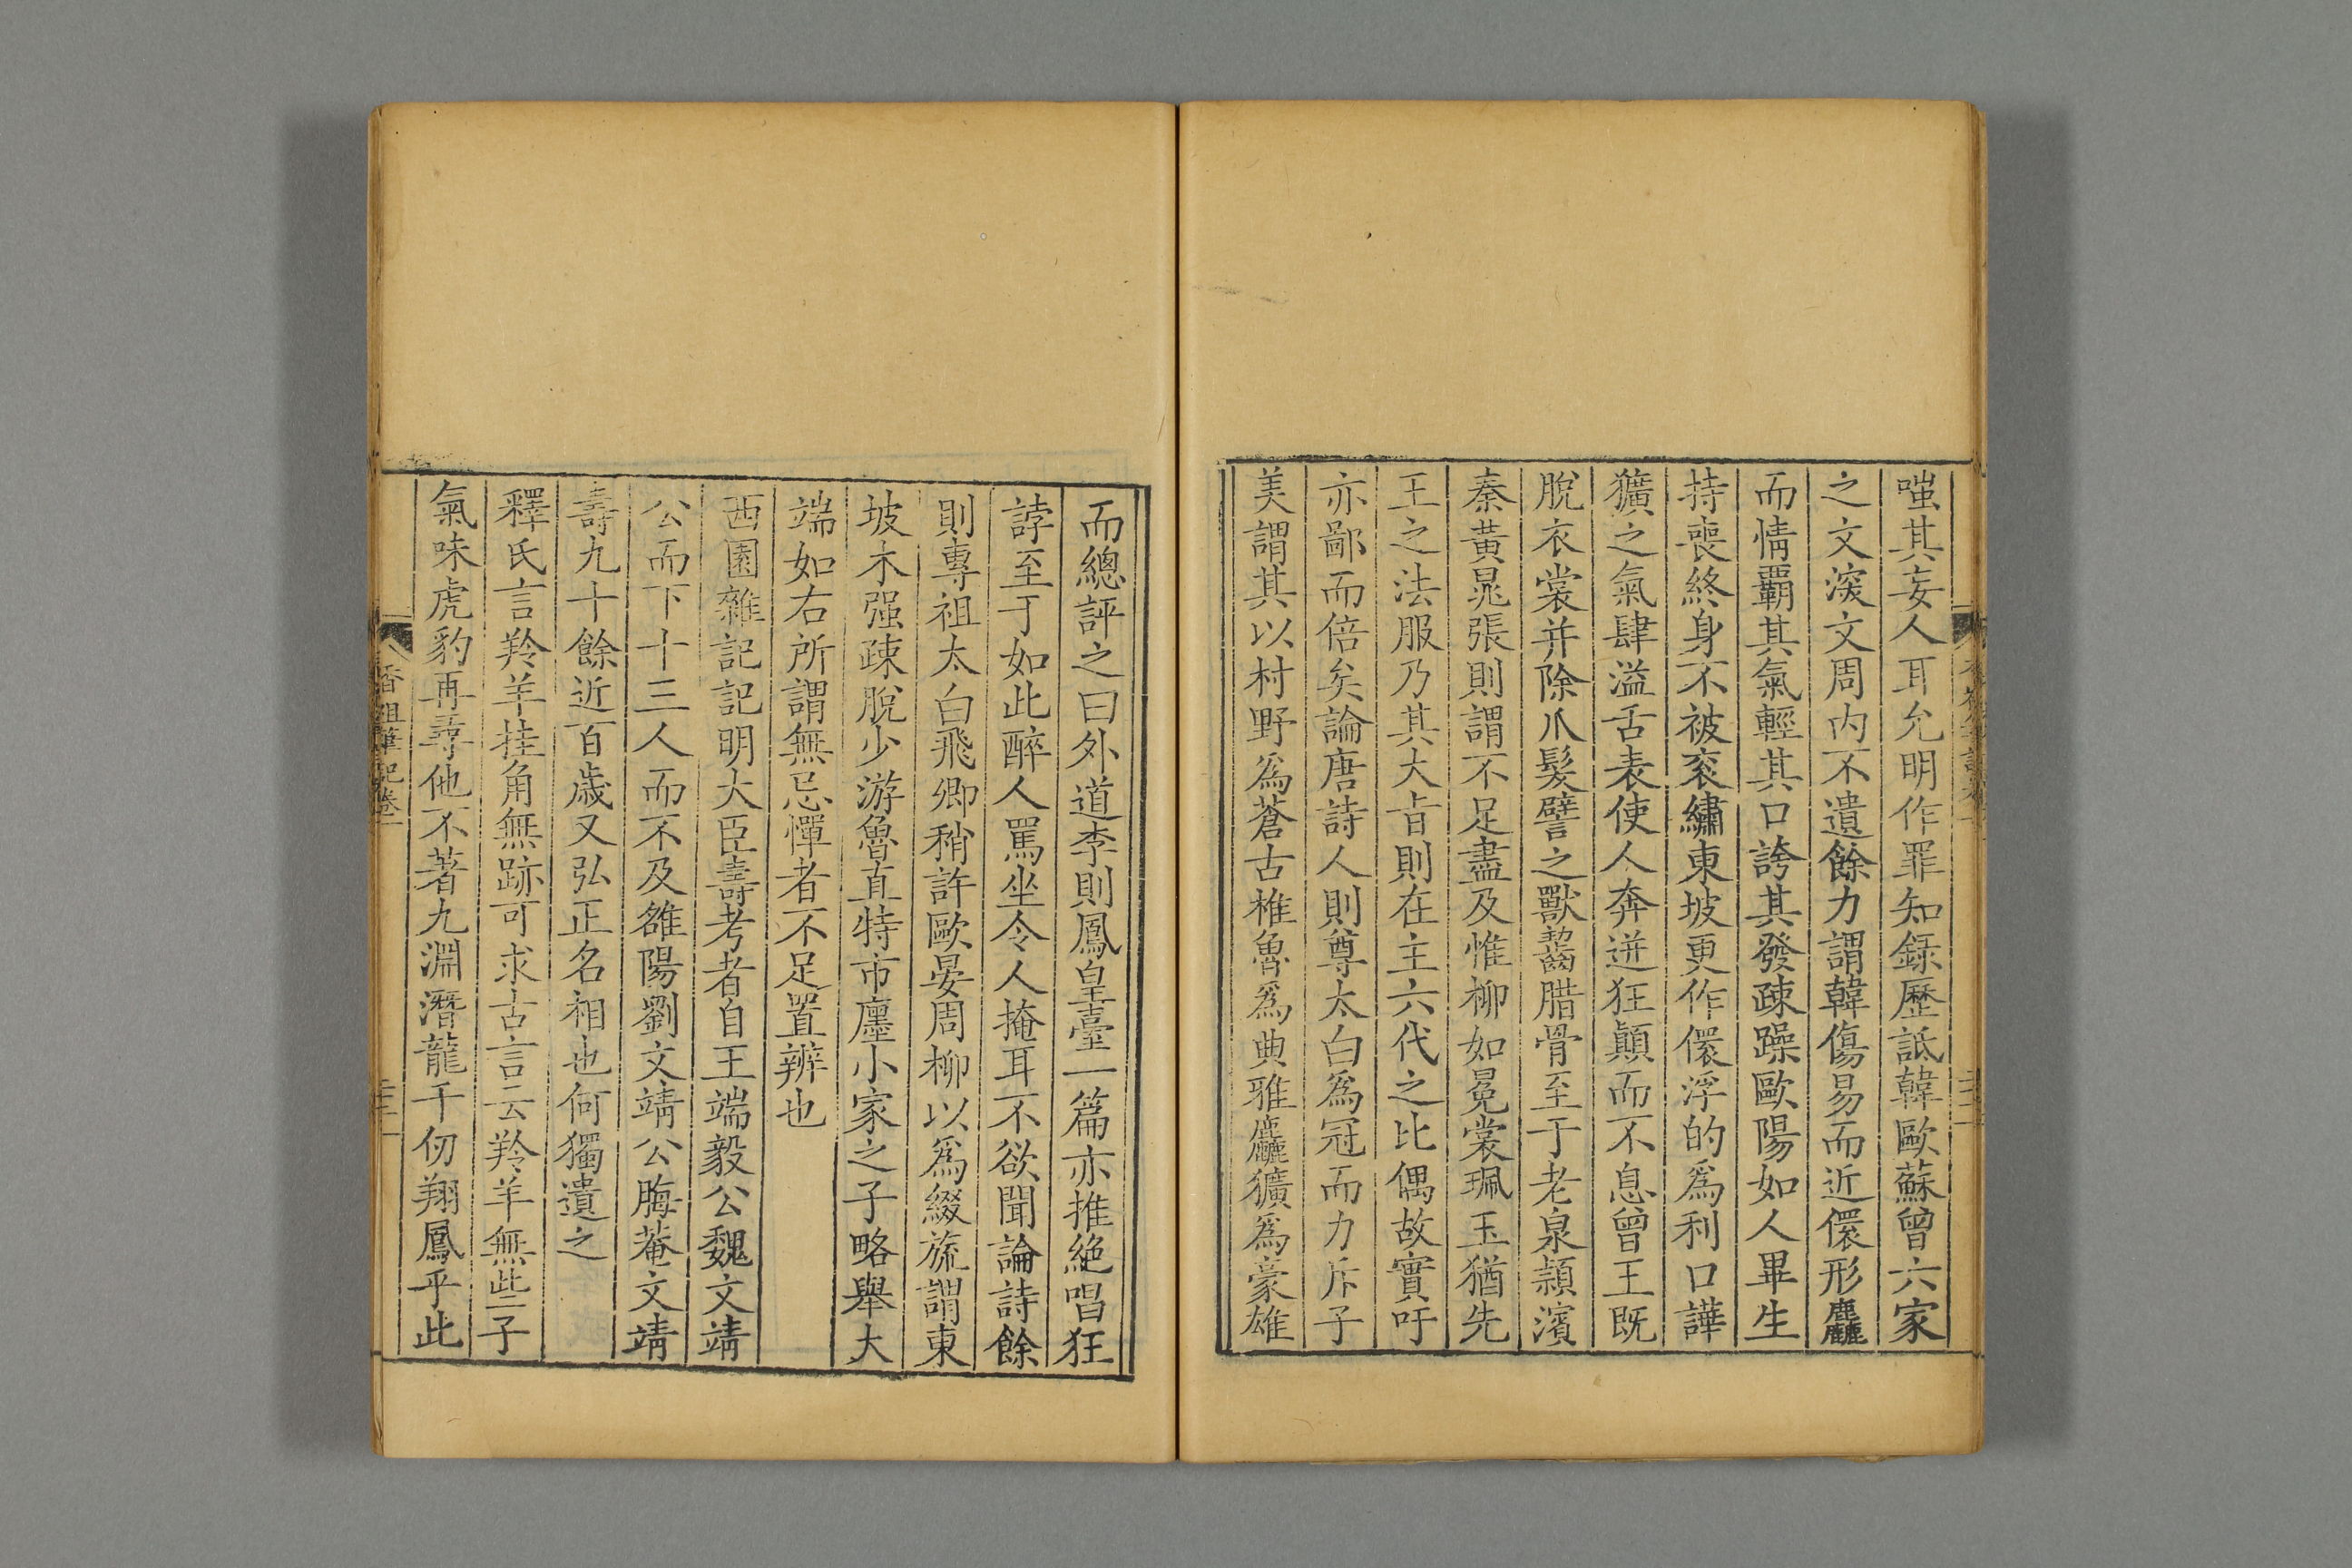 嗤其妄人耳允明作罪知錄歷詆韓歐蘇曾六家
之文深文周內不遺餘力謂韓傷易而近儇形麤
而情霸其氣輕其口誇其發疎躁歐陽如人畢生
持喪終身不被衮繡東坡更作儇浮的爲利口譁
獷之氣肆溢舌表使人奔迸狂顛而不息曾王既
脫衣裳并除爪髮譬之獸齧腊骨至于老泉潁濱
秦黃晁張則謂不足盡及惟柳如冕裳珮玉猶先
王之法服乃其大旨則在主六代之比偶故實吁
亦鄙而倍矣論唐詩人則尊太白爲冠而力斥子
美謂其以村野爲蒼古椎魯爲典雅麤獷爲豪雄
而總評之曰外道李則鳳皇臺一篇亦推絕唱狂
誖至于如此醉人罵坐令人掩耳不欲聞論詩餘
則專祖太白飛卿稍許歐晏周柳以爲綴旒謂東
坡木强疎脫少游魯直特市廛小家之子略舉大
端如右所謂無忌憚者不足置辨也
西園雜記記明大臣壽考者自王端毅公魏文靖
公而下十三人而不及雒陽劉文靖公晦菴文靖
壽九十餘近百歲又弘正名相也何獨遺之
釋氏言羚羊挂角無跡可求古言云羚羊無些子
氣味虎豹再尋他不著九淵潛龍千仞翔鳳乎此
香祖筆記卷一